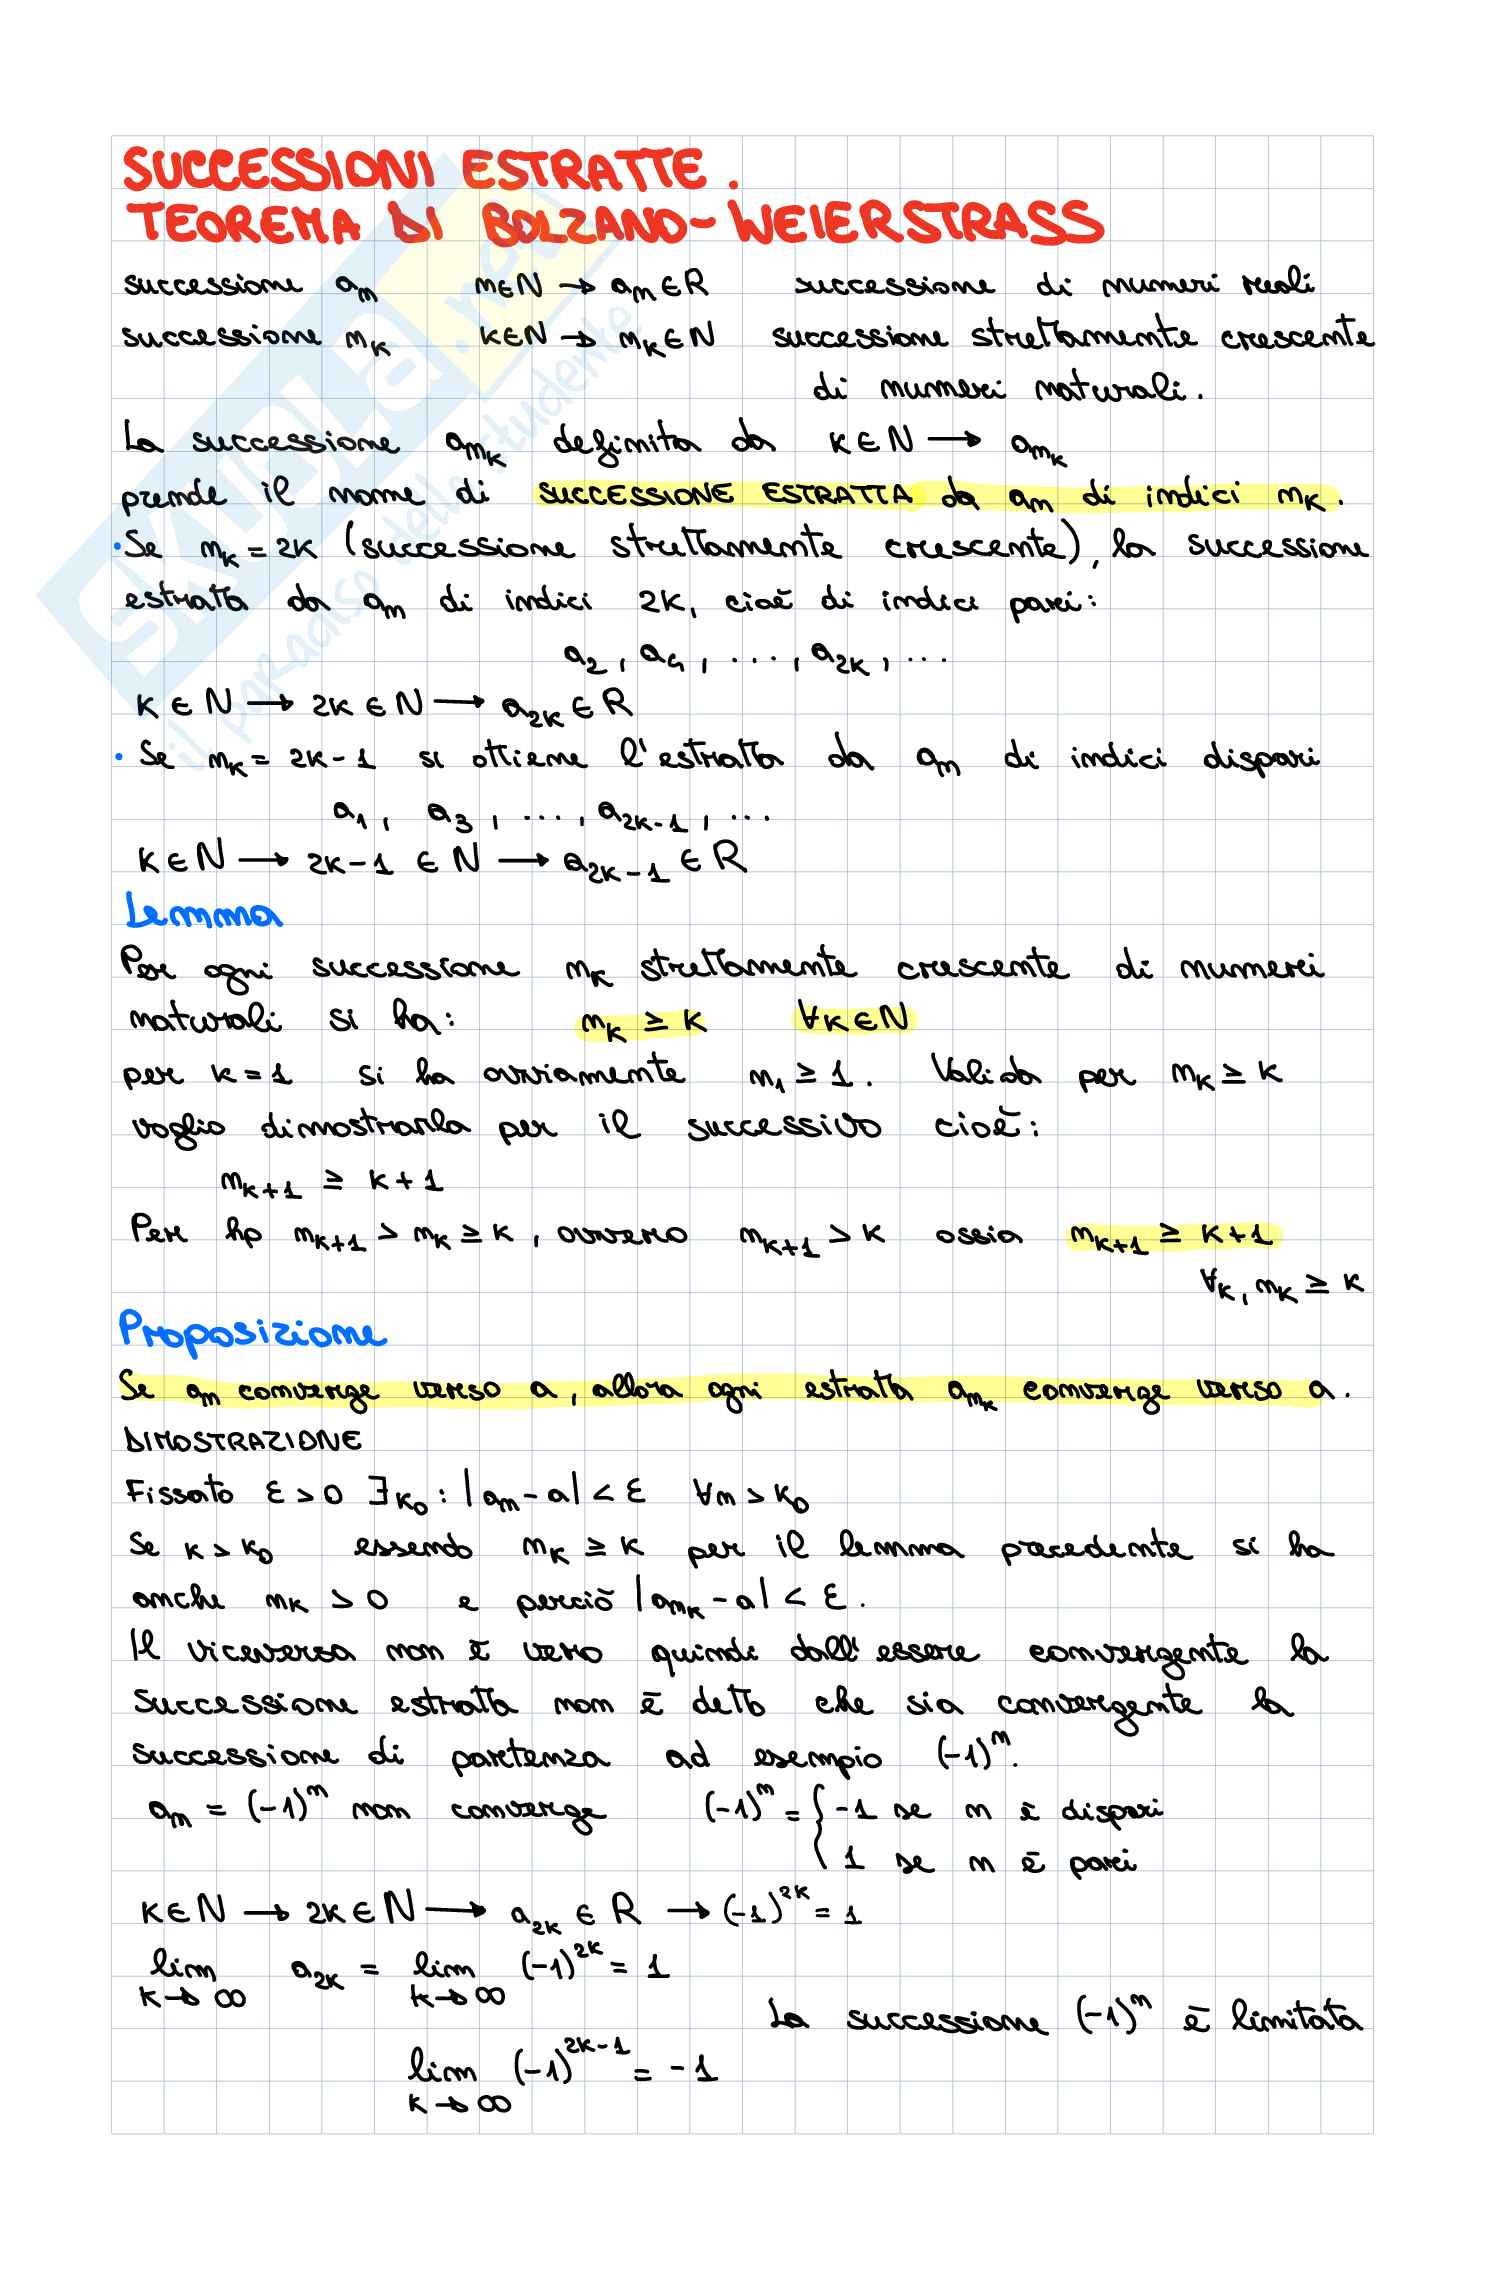 SUCCESSIONI ESTRATTE.
TEOREMA DI BOLZANO-WEIERSTRASS
successione aₙ n∈N → aₙ∈R successione di numeri reali
successione nₖ k∈N → nₖ∈N successione strettamente crescente
di numeri naturali.
La successione aₙₖ definita da k∈N → aₙₖ
prende il nome di SUCCESSIONE ESTRATTA da aₙ di indici nₖ.
• Se nₖ = 2k (successione strettamente crescente), la successione
estratta da aₙ di indici 2k, cioè di indici pari:
a₂, a₄, ..., a₂ₖ, ...
k∈N → 2k∈N → a₂ₖ∈R
• Se nₖ = 2k-1 si ottiene l'estratta da aₙ di indici dispari
a₁, a₃, ..., a₂ₖ₋₁, ...
k∈N → 2k-1 ∈N → a₂ₖ₋₁∈R
Lemma
Per ogni successione nₖ strettamente crescente di numeri
naturali si ha: nₖ ≥ k ∀k∈N
per k=1 si ha ovviamente n₁ ≥ 1. Valida per nₖ ≥ k
voglio dimostrarla per il successivo cioè:
nₖ₊₁ ≥ k+1
Per hp nₖ₊₁ > nₖ ≥ k, ovvero nₖ₊₁ > k ossia nₖ₊₁ ≥ k+1
∀k, nₖ ≥ k
Proposizione
Se aₙ converge verso a, allora ogni estratta aₙₖ converge verso a.
DIMOSTRAZIONE
Fissato ε>0 ∃k₀: |aₙ-a|<ε ∀n>k₀
Se k>k₀ essendo nₖ ≥ k per il lemma precedente si ha
anche nₖ > 0 e perciò |aₙₖ-a|<ε.
Il viceversa non è vero quindi dall'essere convergente la
successione estratta non è detto che sia convergente la
successione di partenza ad esempio (-1)ⁿ.
aₙ = (-1)ⁿ non converge (-1)ⁿ = { -1 se n è dispari
1 se n è pari
k∈N → 2k∈N → a₂ₖ ∈ R → (-1)²ᵏ = 1
lim a₂ₖ = lim (-1)²ᵏ = 1
k→∞ k→∞
La successione (-1)ⁿ è limitata
lim (-1)²ᵏ⁻¹ = -1
k→∞
skuola.net
il paradiso dello studente